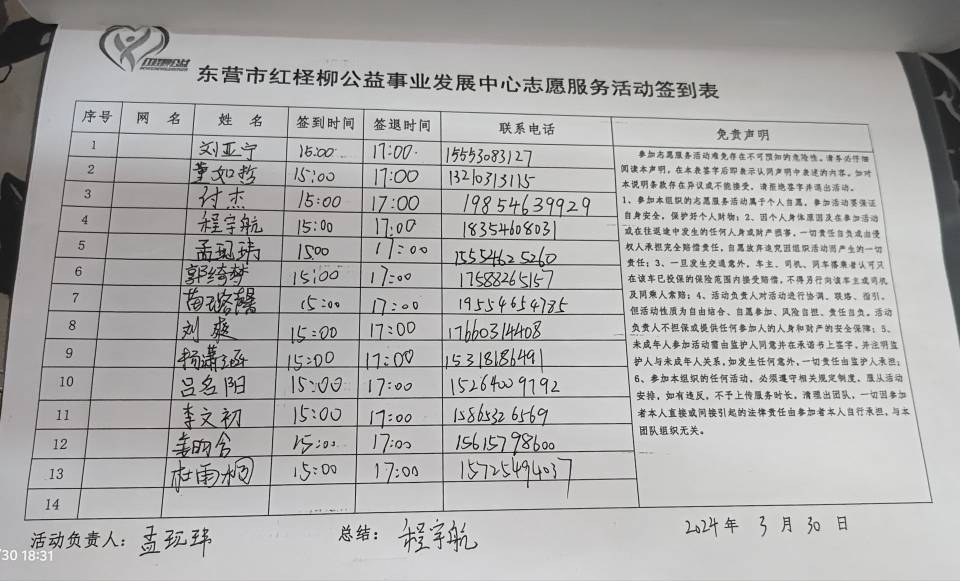 东营市红柽柳公益事业发展中心志愿服务活动签到表
序号 网 名 姓 名 签到时间 签退时间 联系电话 免责声明
1 刘亚宁 15:00 17:00 15553083127
2 董如哲 15:00 17:00 13210313115
3 付杰 15:00 17:00 19854639929
4 程宇航 15:00 17:00 18354608031
5 孟现玮 1500 17:00 15554625260
6 郭绮梦 15:00 17:00 17588265157
7 15:00 17:00 19554654785
8 刘爽 15:00 17:00 17660314408
9 杨潇涵 15:00 17:00 15318186491
10 吕名阳 15:00 17:00 15264009792
11 李文初 15:00 17:00 15865326569
12 15:00 17:00 15615798600
13 杜雨桐 15:00 17:00 15725494037
14
参加志愿服务活动难免存在不可预知的危险性。请务必仔细
阅读本声明，在本表签字后即表示认同声明中表述的内容。如对
本说明条款存在异议或不能接受，请拒绝签字并退出活动。
1、参加本组织的志愿服务活动属于个人自愿，参加活动要保证
自身安全，保护好个人财物；2、因个人身体原因及在参加活动
或在往返途中发生的任何人身或财产损害，一切责任自负或由侵
权人承担完全赔偿责任，自愿放弃追究因组织活动而产生的一切
责任；3、一旦发生交通意外，车主、司机、同车搭乘者认可只
在该车已投保的保险范围内接受赔偿，不得另行向该车主或司机
及同乘人索赔；4、活动负责人对活动进行协调、联络、指引。
但活动性质为自由结合、自愿参加、风险自担、责任自负。活动
负责人不担保或提供任何参加人的人身和财产的安全保障；5、
未成年人参加活动需由监护人同意并在承诺书上签字，并注明监
护人与未成年人关系，如发生任何意外，一切责任由监护人承担；
6、参加本组织的任何活动，必须遵守相关规定制度，服从活动
安排，如有违反，不予上传服务时长，清理出团队。一切因参加
者本人直接或间接引起的法律责任由参加者本人自行承担，与本
团队组织无关。
活动负责人：孟现玮 总结：程宇航 2024年 3月30日
/30 18:31